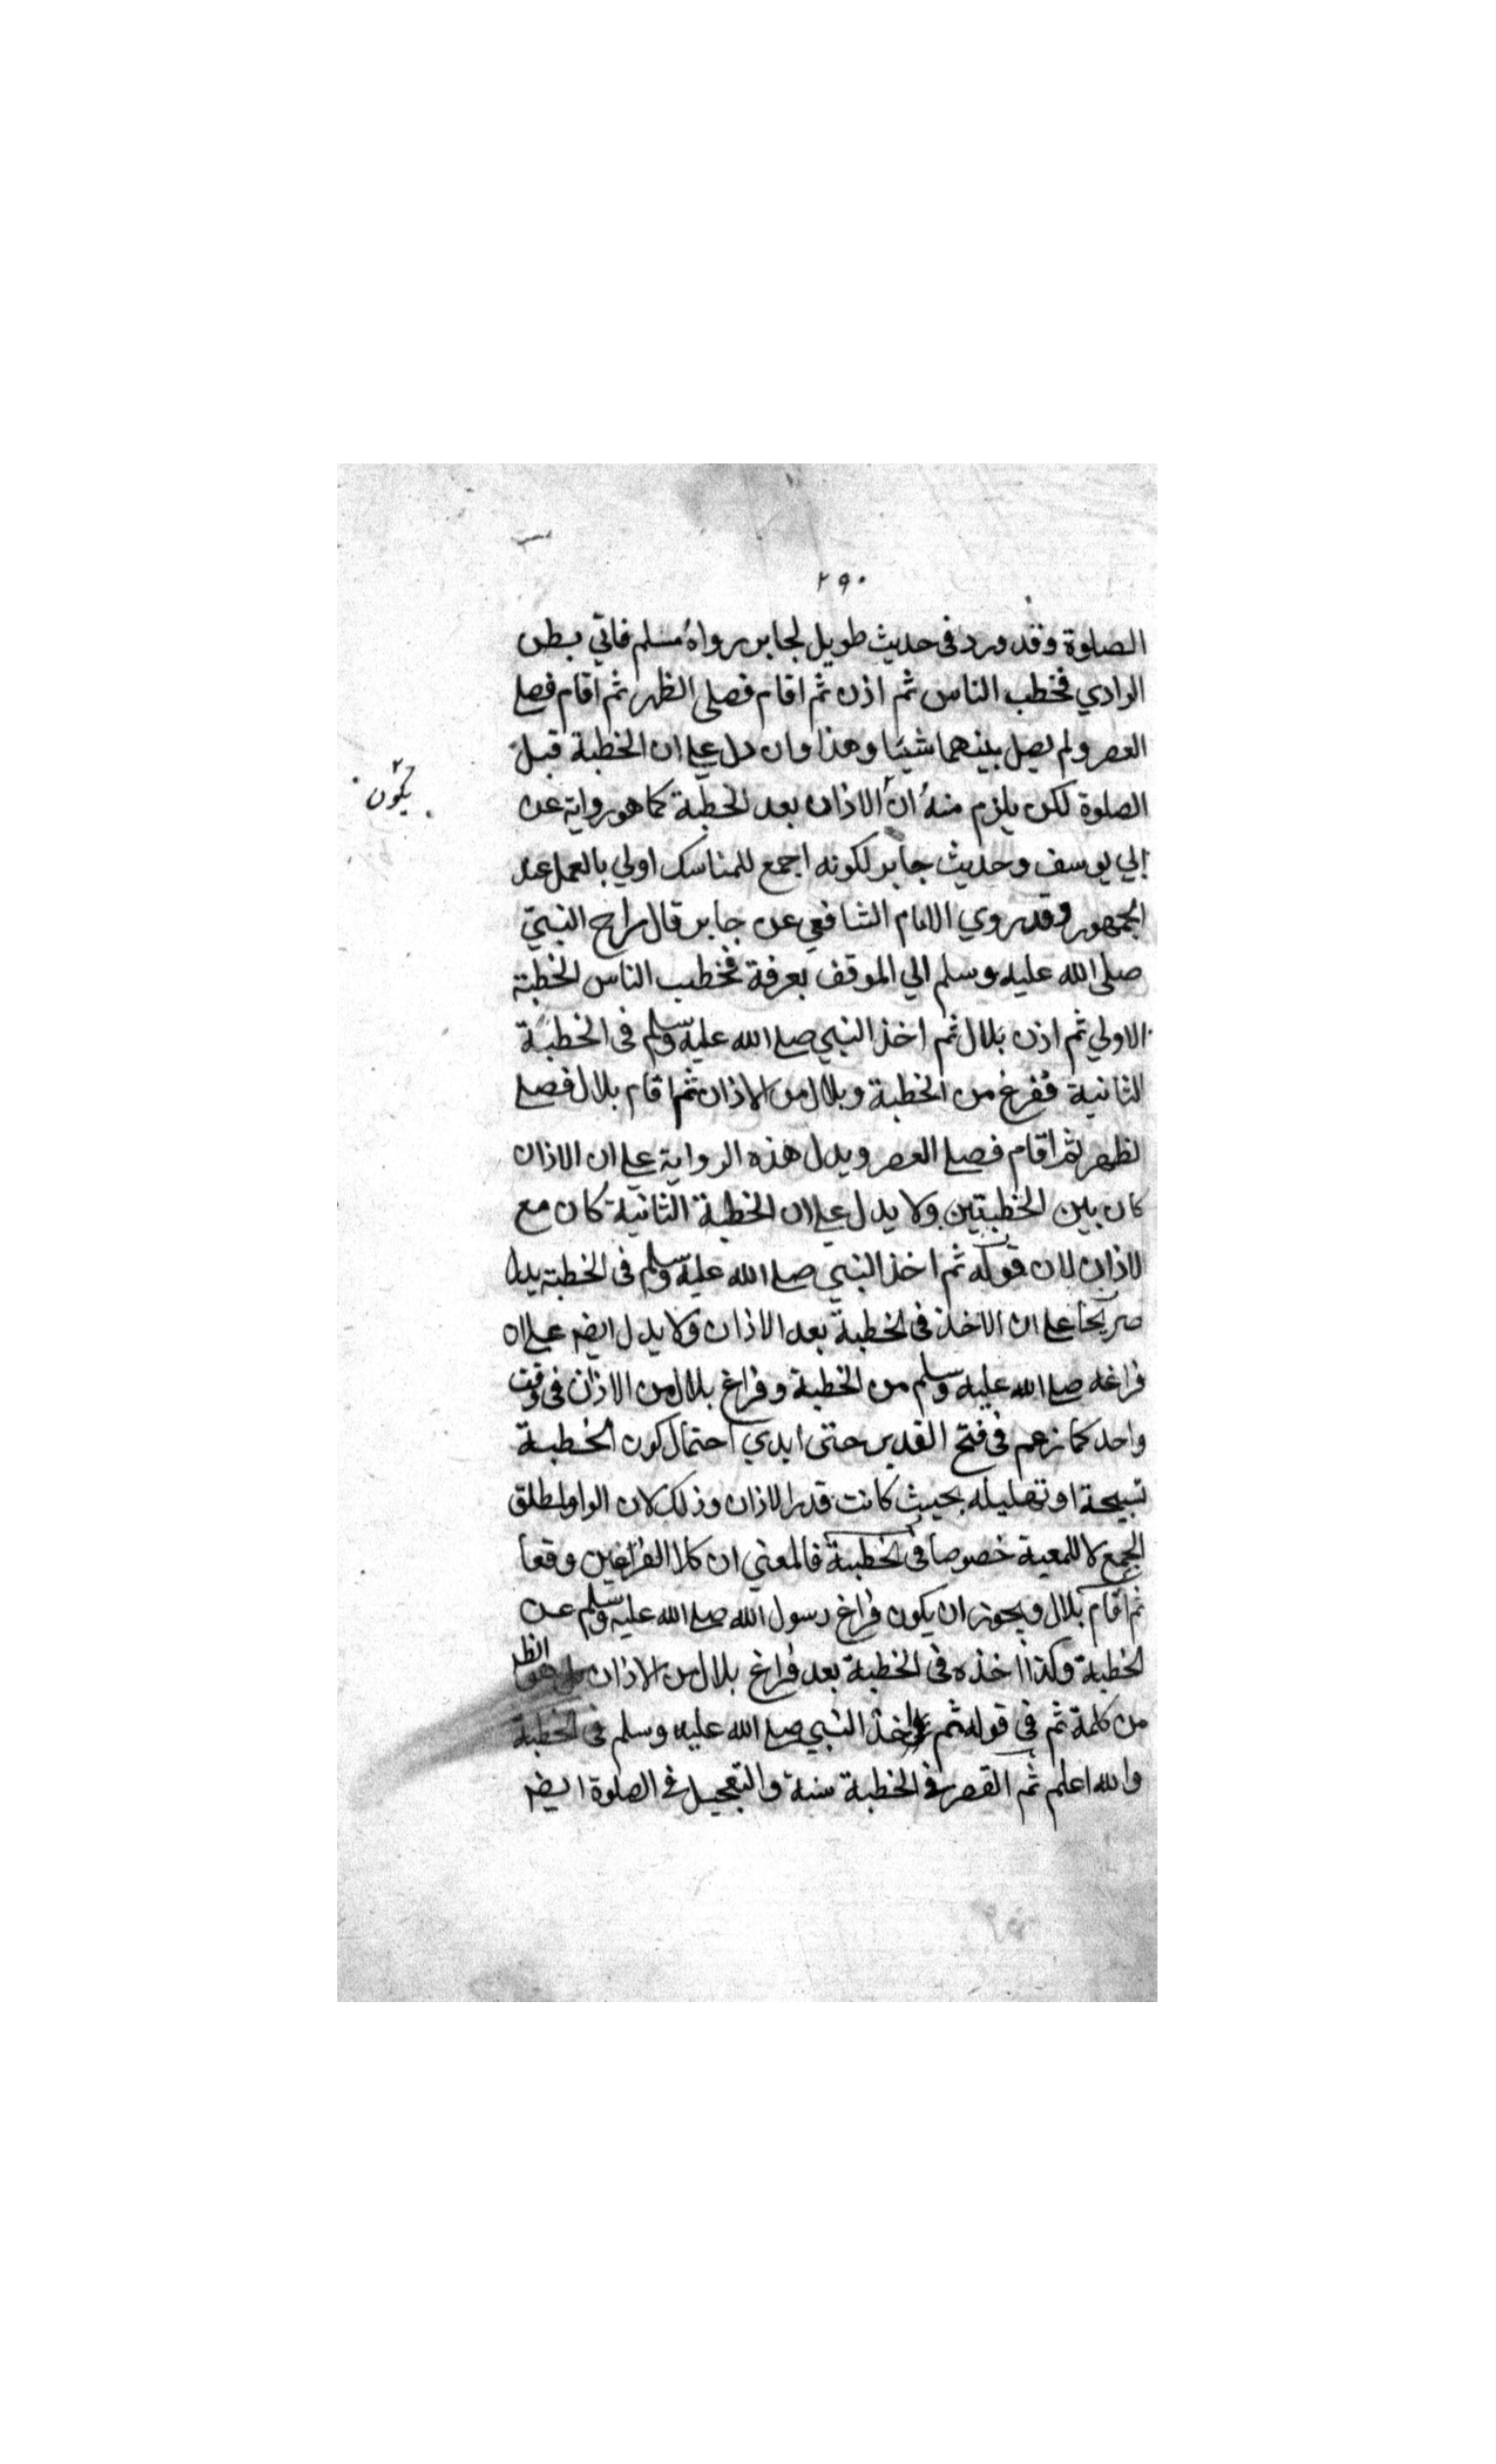 ٢٩٠
الصلوة وقد ورد فى حديث طويل لجابر رواه مسلم فاتي بطن
الوادي فخطب الناس ثم اذن ثم اقام فصلى الظهر ثم اقام فصلے
العصر ولم يصل بينهما شيئا وهذا وان دل علے ان الخطبة قبل
الصلوة لكن يلزم منه ان الاذان بعد الخطبة كما هو رواية عن
يكون ٢
ابي يوسف وحديث جابر لكونه اجمع للمناسك اولي بالعمل عند
الجمهور وقد روي الامام الشافعي عن جابر قال راح النبي
صلى الله عليه وسلم الي الموقف بعرفة فخطب الناس الخطبة
الاولي ثم اذن بلال ثم اخذ النبي صلے الله عليه وسلم فى الخطبة
الثانية ففرغ من الخطبة وبلال من الاذان ثم اقام بلال فصلے
لظهر ثم اقام فصلے العصر ويدل هذه الرواية علے ان الاذان
كان بين الخطبتين ولا يدل علے ان الخطبة الثانية كان مع
لاذان لان قوله ثم اخذ النبي صلے الله عليه وسلم فى الخطبة يدل
صريحا علے ان الاخذ فى الخطبة بعد الاذان ولا يدل ايضا علے ان
فراغه صلے الله عليه وسلم من الخطبة وفراغ بلال من الاذان فى وقت
واحد كما زعم فى فتح القدير حتى ابدي احتمال كون الخطبة
تسبيحة او تهليله بحيث كانت قدر الاذان وذلك لان الواو لمطلق
الجمع لا للمعية خصوصا فى الخطبة فالمعني ان كلا الفراغين وقعا
ثم اقام بلال ويجوز ان يكون فراغ رسول الله صلے الله عليه وسلم عن
لخطبة وكذا اخذه فى الخطبة بعد فراغ بلال من الاذان بل هو الظ
من كلمة ثم في قوله ثم اخذ النبي صلے الله عليه وسلم فى الخطبة
والله اعلم ثم القصر في الخطبة سنة والتعجيل في الصلوة ايضا